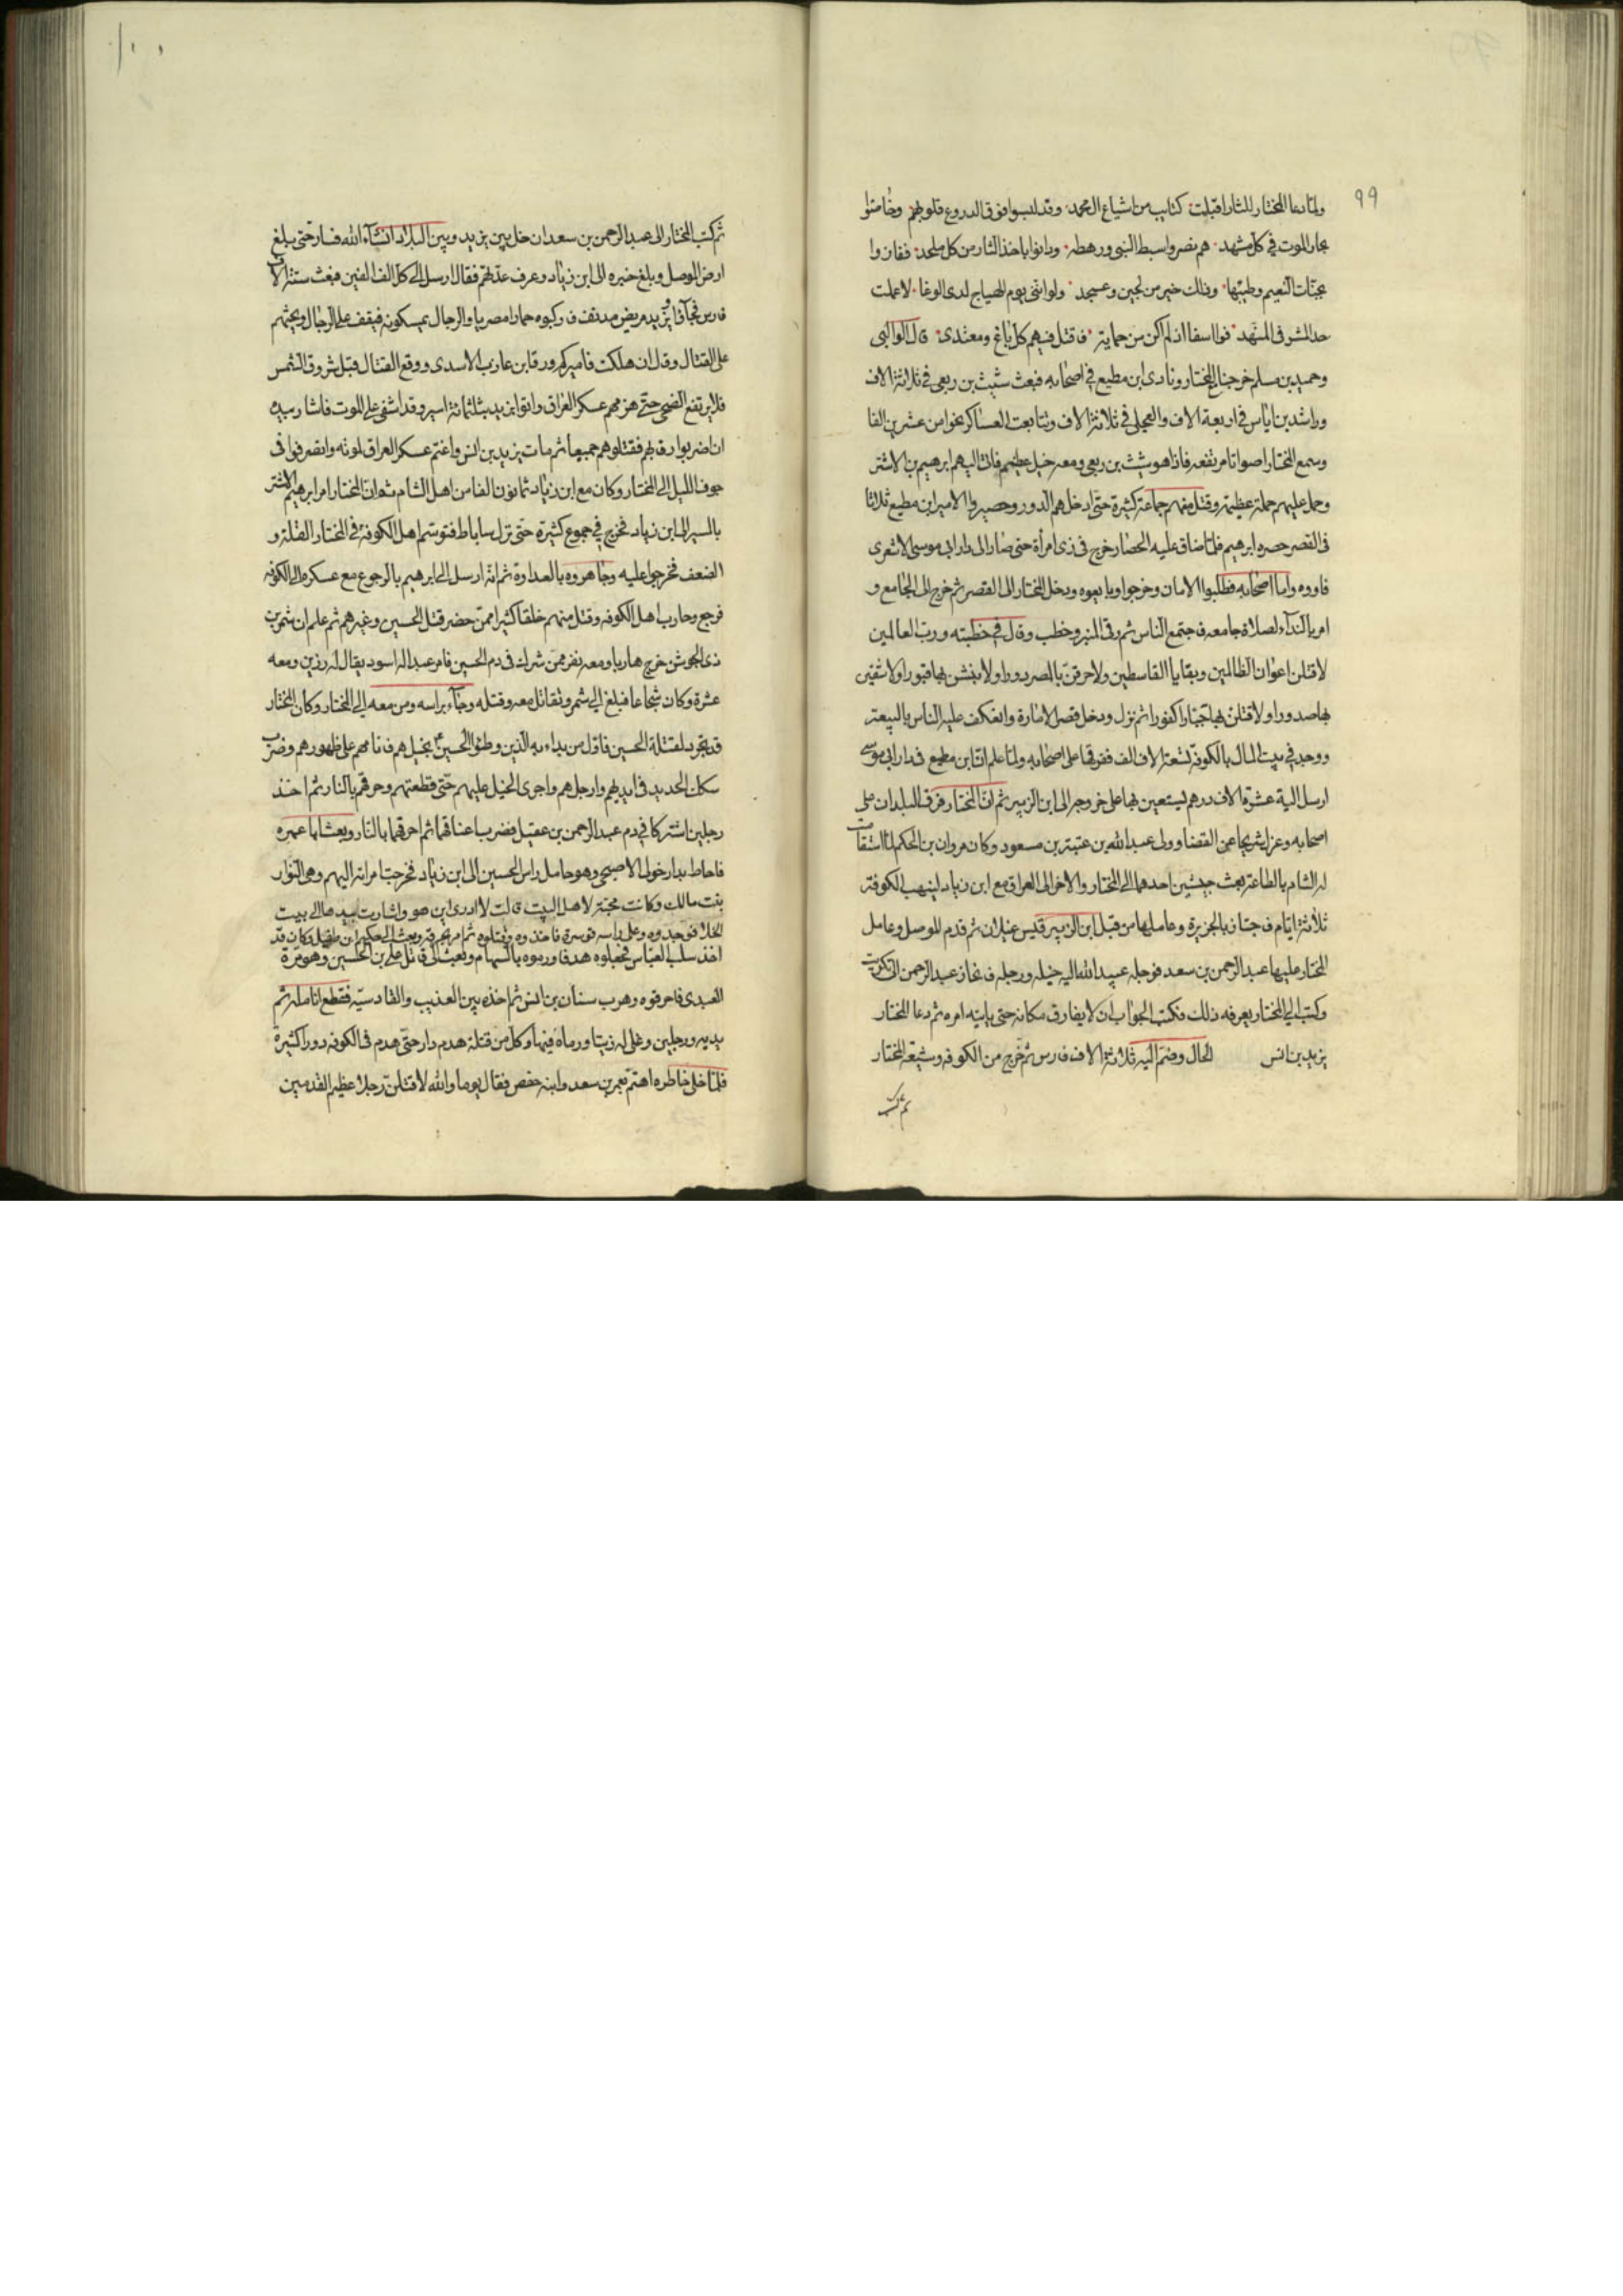 ٩٩
ولما دعا المختار للثار اقبلت كتايب من اشياع ال محمد وقد لبسوا فوق الدروع قلوبهم وخاضوا
بحار الموت في كل مشهد هم نصروا سبط النبي ورهطه ودانوا باخذ الثار من كل ملحد ففازوا
بجنات النعيم وطيبها وذلك خير من لجين وعسجد ولو انني يوم الهياج لدى الوغا لاعملت
حد المشرفي المنهد فوا اسفا اذ لم اكن من حماته فاقتل فيهم كل باغ ومعتدى قال الوالبى
وحميد بن مسلم خرجنا مع المختار ونادى ابن مطيع في اصحابه فبعث شبث بن ربعى في ثلاثة الاف
وراشد بن اياس في اربعة الاف والعجلى في ثلاثة الاف وتتابعت العساكر نحوا من عشرين الفا
وسمع المختار اصواتا مرتفعه فاذا هو شبث بن ربعى ومعه خيل عظيم فاتى اليهم ابرهيم بن الاشتر
وحمل عليهم حملة عظيمة وقتل منهم جماعة كثيرة حتى ادخلهم الدور وحصروا الامير ابن مطيع ثلاثا
فى القصر حصره ابرهيم فلما ضاق عليه الحصار خرج فى زى امرأة حتى صار الى دار ابى موسى الاشعرى
فاووه واما اصحابه فطلبوا الامان وخرجوا وبايعوه ودخل المختار الى القصر ثم خرج الى الجامع و
امر بالندآء لصلاة جامعه فاجتمع الناس ثم رقى المنبر وخطب وقال في خطبته ورب العالمين
لاقتلن اعوان الظالمين وبقايا القاسطين ولاحرقن بالمصر دورا ولانبشن بها قبورا ولاشفين
بها صدورا ولاقتلن بها جبارا كفورا ثم نزل ودخل قصر الامارة وانعكف عليه الناس بالبيعة
ووجد في بيت المال بالكوفة تسعة الاف الف ففرقها على اصحابه ولما علم ان ابن مطيع في دار ابى موسى
ارسل اليه عشرة الاف درهم ليستعين بها على خروجه الى ابن الزبير ثم ان المختار فرق البلدان على
اصحابه وعزل شريحا عن القضا وولى عبد الله بن عتبة بن مسعود وكان مروان بن الحكم لما استقامت
له الشام بالطاعة بعث جيشين احدهما الى المختار والاخر الى العراق مع ابن زياد لينهب الكوفة
ثلاثة ايام فاجتاز بالجزيرة وعاملها من قبل ابن الزبير قيس عيلان ثم قدم الموصل وعامل
المختار عليها عبد الرحمن بن سعد فوجه عبيد الله اليه خيله ورجله فانحاز عبد الرحمن الى تكريت
وكتب الى المختار يعرفه ذلك فكتب الجواب ان لا يفارق مكانه حتى ياتيه امره ثم دعا المختار
يزيد بن انس الحال وضم اليه ثلاثة الاف فارس ثم خرج من الكوفه وشيعه المختار
ثم كتب
١٠٠
ثم كتب المختار الى عبد الرحمن بن سعد ان خل بين يزيد وبين البلاد انشآء الله فسار حتى بلغ
ارض الموصل وبلغ خبره الى ابن زياد وعرف عدتهم فقال ارسل الى كل الف الفين فبعث ستة الاف
فارس فجآؤا ويزيد مريض مدنف فاركبوه حمارا مصريا والرجال يمسكونه فيقف على الرجال ويحثهم
على القتال وقال ان هلكت فاميركم ورقا بن عازب الاسدى ووقع القتال قبل شروق الشمس
فلا يرتفع الضحى حتى هزمهم عسكر العراق واتوا يزيد بثلثمائة اسير وقد اشفى على الموت فاشار بيده
ان اضربوا رقابهم فقتلوهم جميعا ثم مات يزيد بن انس واغتم عسكر العراق لموته وانصرفوا فى
جوف الليل الى المختار وكان مع ابن زياد ثمانون الفا من اهل الشام ثم ان المختار امر ابرهيم الاشتر
بالسير الى ابن زياد فخرج في جموع كثيرة حتى نزل ساباط فتوسم اهل الكوفه فى المختار القلة و
الضعف فخرجوا عليه وجاهروه بالعداوة ثم انه ارسل الى ابرهيم بالرجوع مع عسكره الى الكوفه
فرجع وحارب اهل الكوفه وقتل منهم خلقا كثيرا ممن حضر قتل الحسين وغيرهم ثم علم ان شمر بن
ذى الجوشن خرج هاربا ومعه نفر ممن شرك فى دم الحسين فامر عبدا له اسود يقال له رزين ومعه
عشرة وكان شجاعا فبلغ الى شمر وتقاتل معه وقتله وجآء براسه ومن معه الى المختار وكان المختار
قد تجرد لقتلة الحسين فاول من بداء به الذين وطئوا الحسين بخيلهم فانامهم على ظهورهم وضرب
سكك الحديد فى ايديهم وارجلهم واجرى الخيل عليهم حتى قطعتهم وحرقهم بالنار ثم اخذ
رجلين اشتركا في دم عبد الرحمن بن عقيل فضرب اعناقهما ثم احرقهما بالنار وبعث ابا عمره
فاحاط بدار خولى الاصبحى وهو حامل راس الحسين الى ابن زياد فخرجت امراته اليهم وهى النوار
بنت مالك وكانت محبة لاهل البيت قالت لا ادرى اين هو واشارت بيدها الى بيت
الخلا فوجدوه وعلى راسه قوسرة فاخذوه وقتلوه ثم امر بحرقه وبعث الى حكيم بن طفيل وكان قد
اخذ سلب العباس فجعلوه هدفا ورموه بالسهام وبعث الى قاتل على بن الحسين وهو مرة
العبدى فاحرقوه وهرب سنان بن انس ثم اخذه بين العذيب والقادسيه فقطع انامله ثم
يديه ورجليه وغلى له زيتا ورماه فيها وكل من قتلة هدم دار حتى هدم فى الكوفه دورا كثيرة
فلما خلى خاطره اهتم بعمر بن سعد وابنه حفص فقال يوما والله لاقتلن رجلا عظيم القدمين